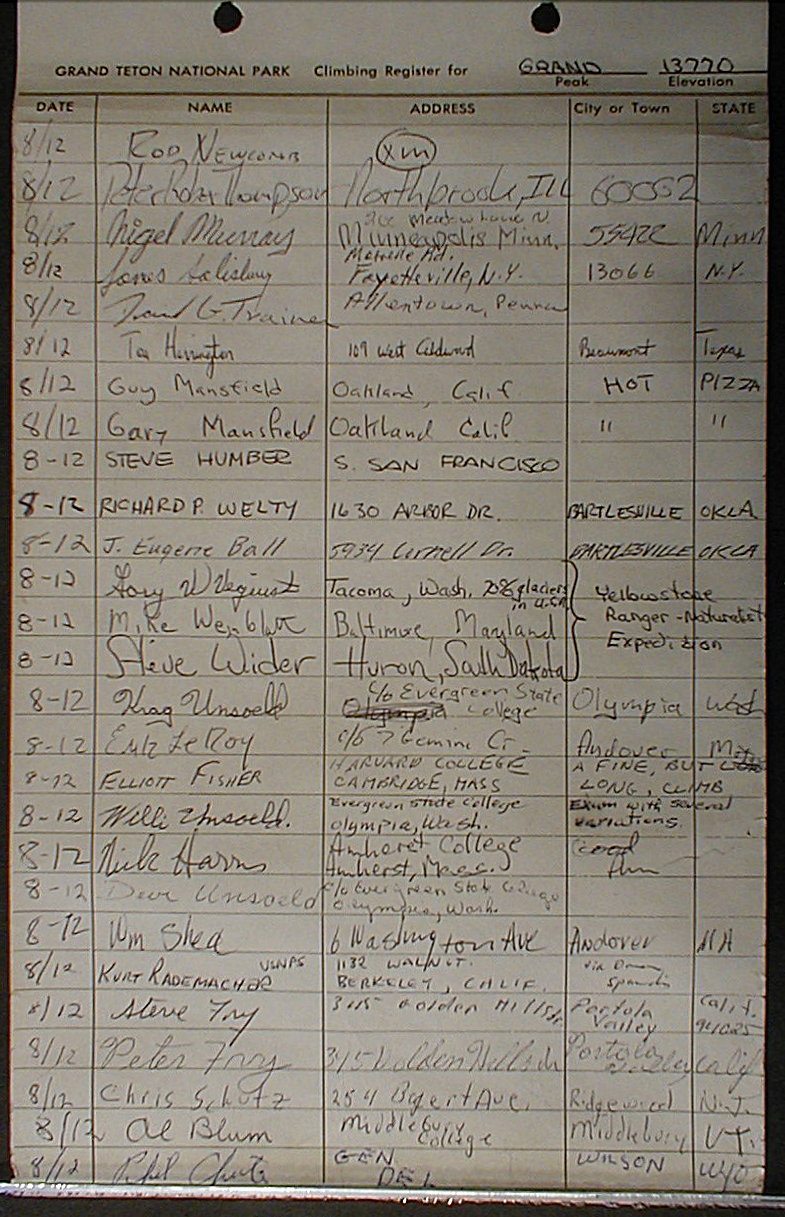 GRAND TETON NATIONAL PARK Climbing Register for GRAND 13770
Peak Elevation
DATE NAME ADDRESS City or Town STATE
8/12 ROD NEWCOMB XM
8/12 Peter Thompson Northbrook, Ill 60062
8/12 Nigel Murray Meadow Lane N. Minneapolis Minn. 55422 Minn
8/12 James Salisbury Rd. Fayetteville, N.Y. 13066 N.Y.
8/12 G. Trainer Allentown, Penna
8/12 Herrington 109 West Beaumont Texas
8/12 Guy Mansfield Oakland, Calif HOT PIZZA
8/12 Gary Mansfield Oakland Calif. " "
8-12 STEVE HUMBER S. SAN FRANCISCO
8-12 RICHARD P. WELTY 1630 ARBOR DR. BARTLESVILLE OKLA
8-12 J. Eugene Ball 5934 Cornell Dr. BARTLESVILLE OKLA
8-12 Gary W Tacoma, Wash. 70% glaciers in U.S.A. Yellowstone
8-12 Mike Baltimore, Maryland Ranger-Naturalist
8-12 Steve Wider Huron, South Dakota Expedition
8-12 Krag Unsoeld c/o Evergreen State College Olympia Wash
8-12 LeRoy 7 Gemini Cr. Andover
8-12 ELLIOTT FISHER HARVARD COLLEGE CAMBRIDGE, MASS A FINE, BUT LONG, CLIMB
8-12 Willi Unsoeld. Evergreen State College Olympia, Wash. Exum with several variations.
8-12 Nick Harris Amherst College Amherst, Mass. Good
8-12 Devi Unsoeld c/o Evergreen State College Olympia, Wash.
8-12 Wm Shea 6 Washington Ave Andover MA
8/12 KURT RADEMACHER USNPS 1132 WALNUT. BERKELEY, CALIF.
8/12 Steve Fry 345 Golden Hills Dr. Portola Valley Calif. 94025
8/12 Peter Fry 345 Golden Hills Dr Portola Valley Calif
8/12 Chris Schutz 254 Bogert Ave. Ridgewood N.J.
8/12 Al Blum Middlebury College Middlebury VT.
8/12 Phil GEN DEL WILSON WYO